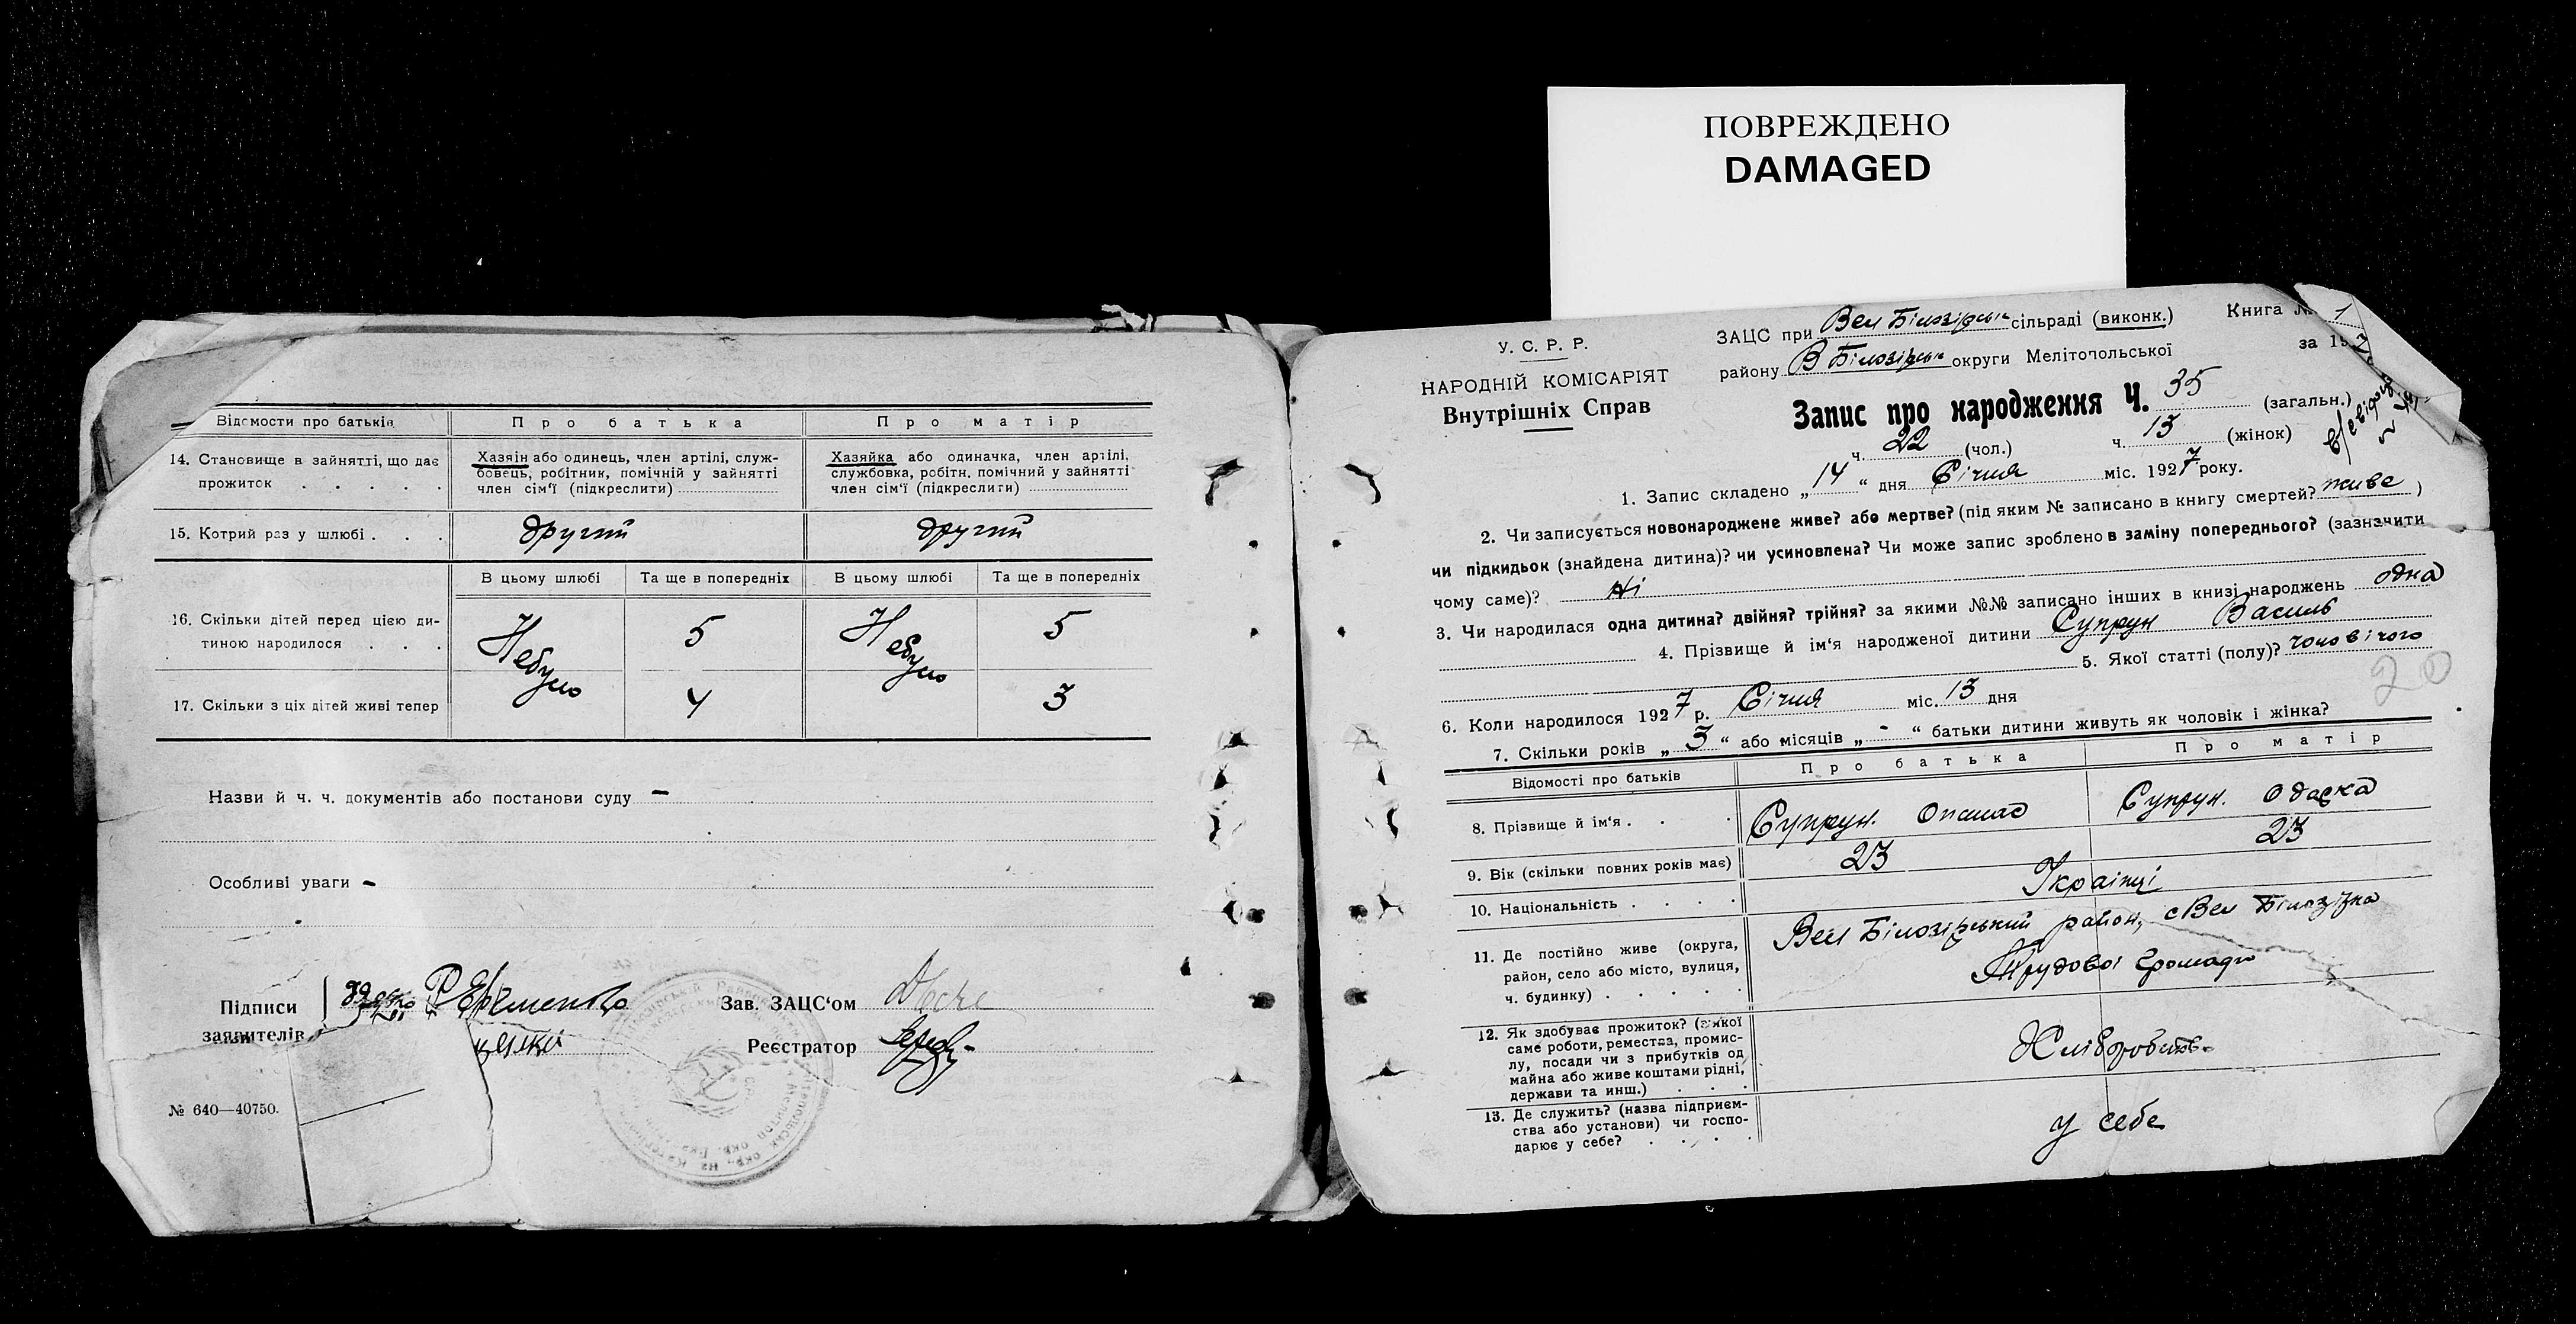 ПОВРЕЖДЕНО
DAMAGED
Відомости про батьків
Про батька
Про матір
14. Становище в зайнятті, що дає
прожиток . . . . .
Хазяін або одинець, член артілі, служ-
бовець, робітник, помічній у зайнятті
член сім'ї (підкреслити)
Хазяйка або одиначка, член артілі,
службовка, робітн. помічний у зайнятті
член сім'ї (підкреслити)
15. Котрий раз у шлюбі . . .
другий
другий
В цьому шлюбі
Та ще в попередніх
В цьому шлюбі
Та ще в попередніх
16. Скільки дітей перед цією ди-
тиною народилося . . .
Небуло
5
Небуло
5
17. Скільки з ціх дітей живі тепер
4
3
Назви й ч. ч. документів або постанови суду –
Особливі уваги –
Підписи
заявителів
Зав. ЗАЦС'ом
Реєстратор
№ 640—40750.
У. С. Р. Р.
НАРОДНІЙ КОМІСАРІЯТ
Внутрішніх Справ
ЗАЦС при Вел Білозірськ сільраді (виконк.)
Книга № 1
району В Білозірськ округи Мелітопольської
за 192
Запис про народження Ч. 35 (загальн.)
ч. 22 (чол.) ч. 13 (жінок)
1. Запис складено „ 14 “ дня Січня міс. 1927 року.
2. Чи записується новонароджене живе? або мертве? (під яким № записано в книгу смертей? живе )
чи підкидьок (знайдена дитина)? чи усиновлена? Чи може запис зроблено в заміну попереднього? (зазначити
чому саме)? Ні
3. Чи народилася одна дитина? двійня? трійня? за якими №№ записано інших в книзі народжень одна
4. Прізвище й ім'я народженої дитини Супрун Василь
5. Якої статті (полу)? чоловічого
20
6. Коли народилося 1927 р. Січня міс. 13 дня
7. Скільки років „ 3 “ або місяців „ - “ батьки дитини живуть як чоловік і жінка?
Відомості про батьків
Про батька
Про матір
8. Прізвище й ім'я . . .
Супрун. Опанас
Супрун. Одарка
9. Вік (скільки повних років має)
23
23
10. Національність . . . .
Українці
11. Де постійно живе (округа,
район, село або місто, вулиця,
ч. будинку) . . . . .
Вел Білозірський район, с Вел Білозірка
Трудової Громади
12. Як здобуває прожиток? (з якої
саме роботи, ремества, промис-
лу, посади чи з прибутків од
майна або живе коштами рідні,
держави та инш.) . . .
Хліборобств.
13. Де служить? (назва підприєм-
ства або установи) чи госпо-
дарює у себе? . . . .
у себе